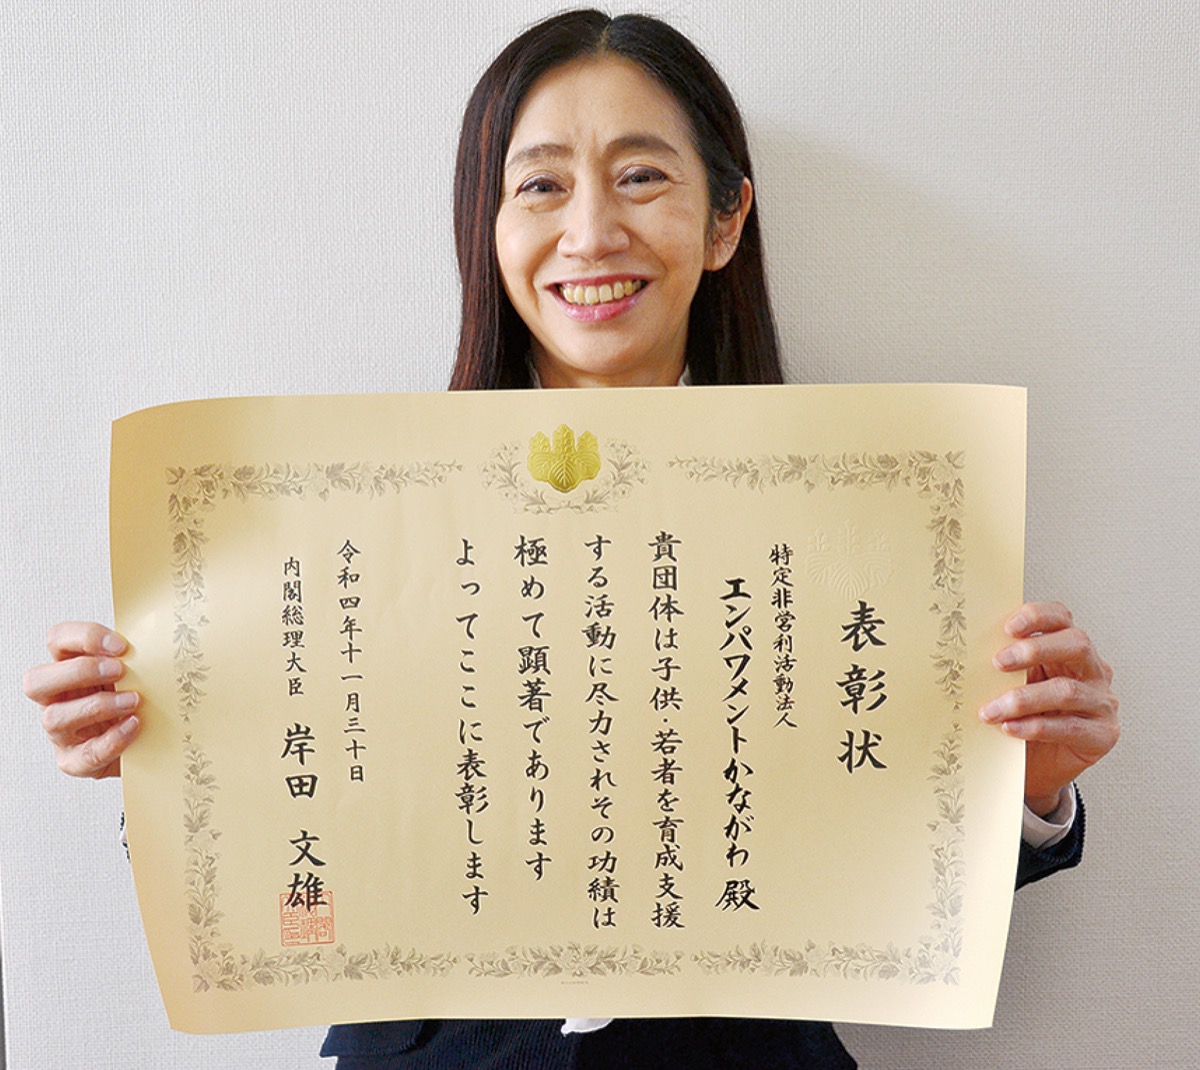 表彰状
特定非営利活動法人
エンパワメントかながわ 殿
貴団体は子供・若者を育成支援
する活動に尽力されその功績は
極めて顕著であります
よってここに表彰します
令和四年十一月三十日
内閣総理大臣 岸田 文雄